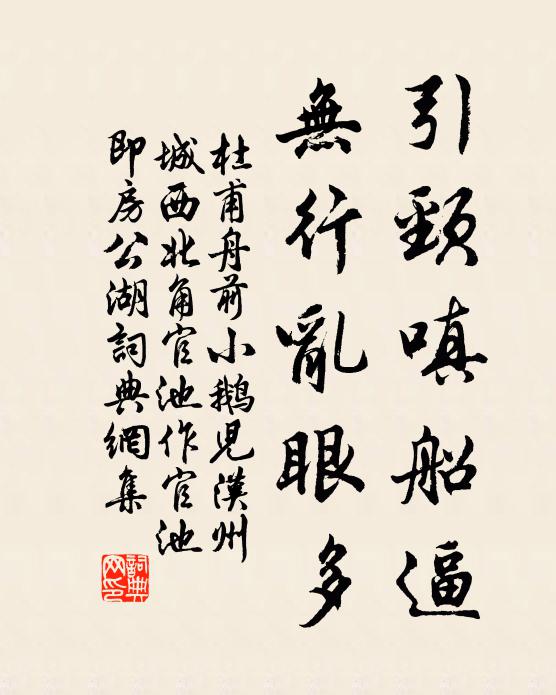 引頸嗔船逼
無行亂眼多
杜甫舟前小鵝兒漢州
城西北角官池作官池
即房公湖詞典網集
詞典网印